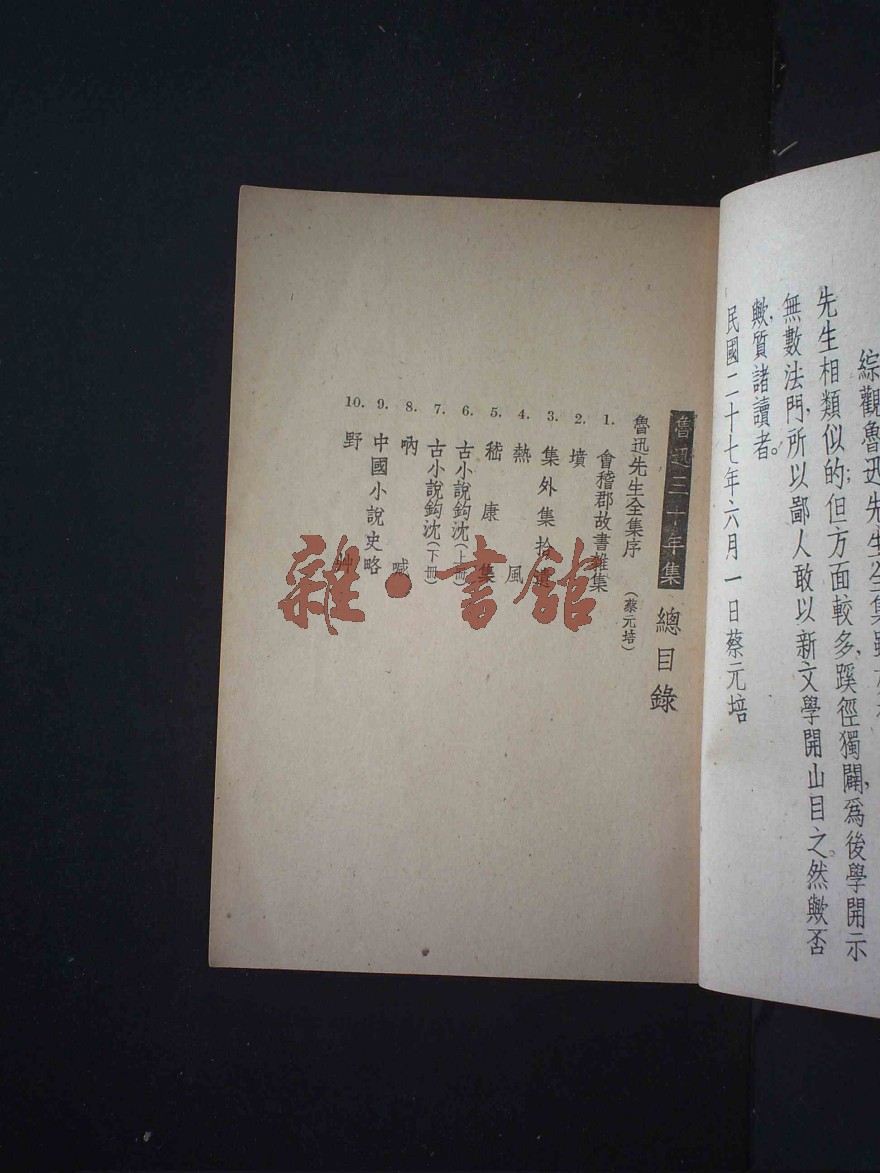 綜觀魯迅先生全集雖
先生相類似的；但方面較多，蹊徑獨闢，爲後學開示
無數法門，所以鄙人敢以新文學開山目之。然歟否
歟，質諸讀者。
民國二十七年六月一日蔡元培
魯迅三十年集 總目錄
魯迅先生全集序（蔡元培）
1. 會稽郡故書雜集
2. 墳
3. 集外集拾遺
4. 熱風
5. 嵇康集
6. 古小說鈎沈（上冊）
7. 古小說鈎沈（下冊）
8. 吶喊
9. 中國小說史略
10. 野艸
雜·書館